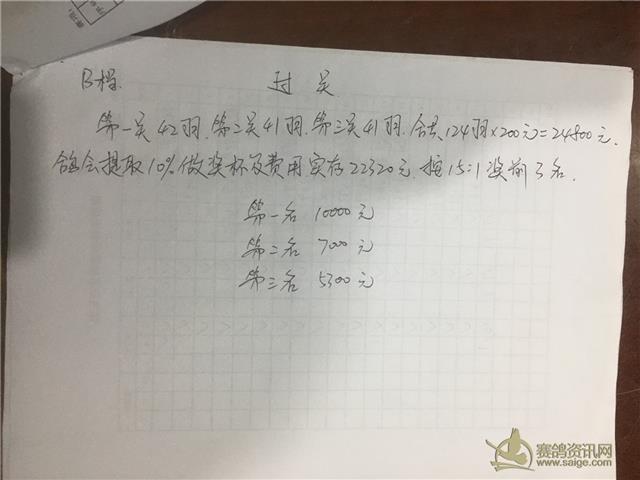 B档. 过关
第一关42羽.第二关41羽.第三关41羽.合共124羽×200元=24800元.
鸽会提取10%做奖杯及费用实存22320元.按15:1奖前3名.
第一名 10000元
第二名 7000元
第三名 5300元
赛鸽资讯网
www.saige.com